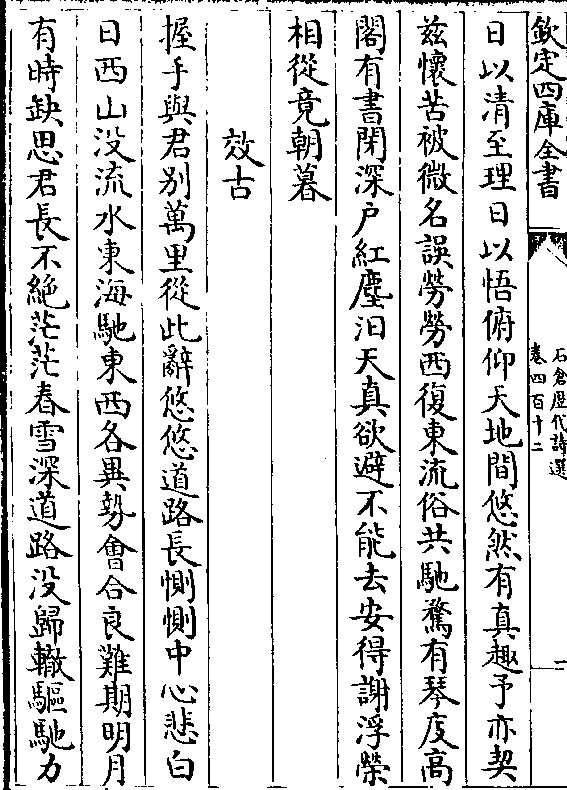 欽定四庫全書
石倉歷代詩選
卷四百十二
二
日以清至理日以悟俯仰天地間悠然有真趣予亦契
兹懷苦被微名誤勞勞西復東流俗共馳騖有琴庋高
閣有書閉深户紅塵汩天真欲避不能去安得謝浮榮
相從竟朝暮
效古
握手與君别萬里從此辭悠悠道路長惻惻中心悲白
日西山没流水東海馳東西各異勢會合良難期明月
有時缺思君長不絶茫茫春雪深道路没歸轍驅馳力